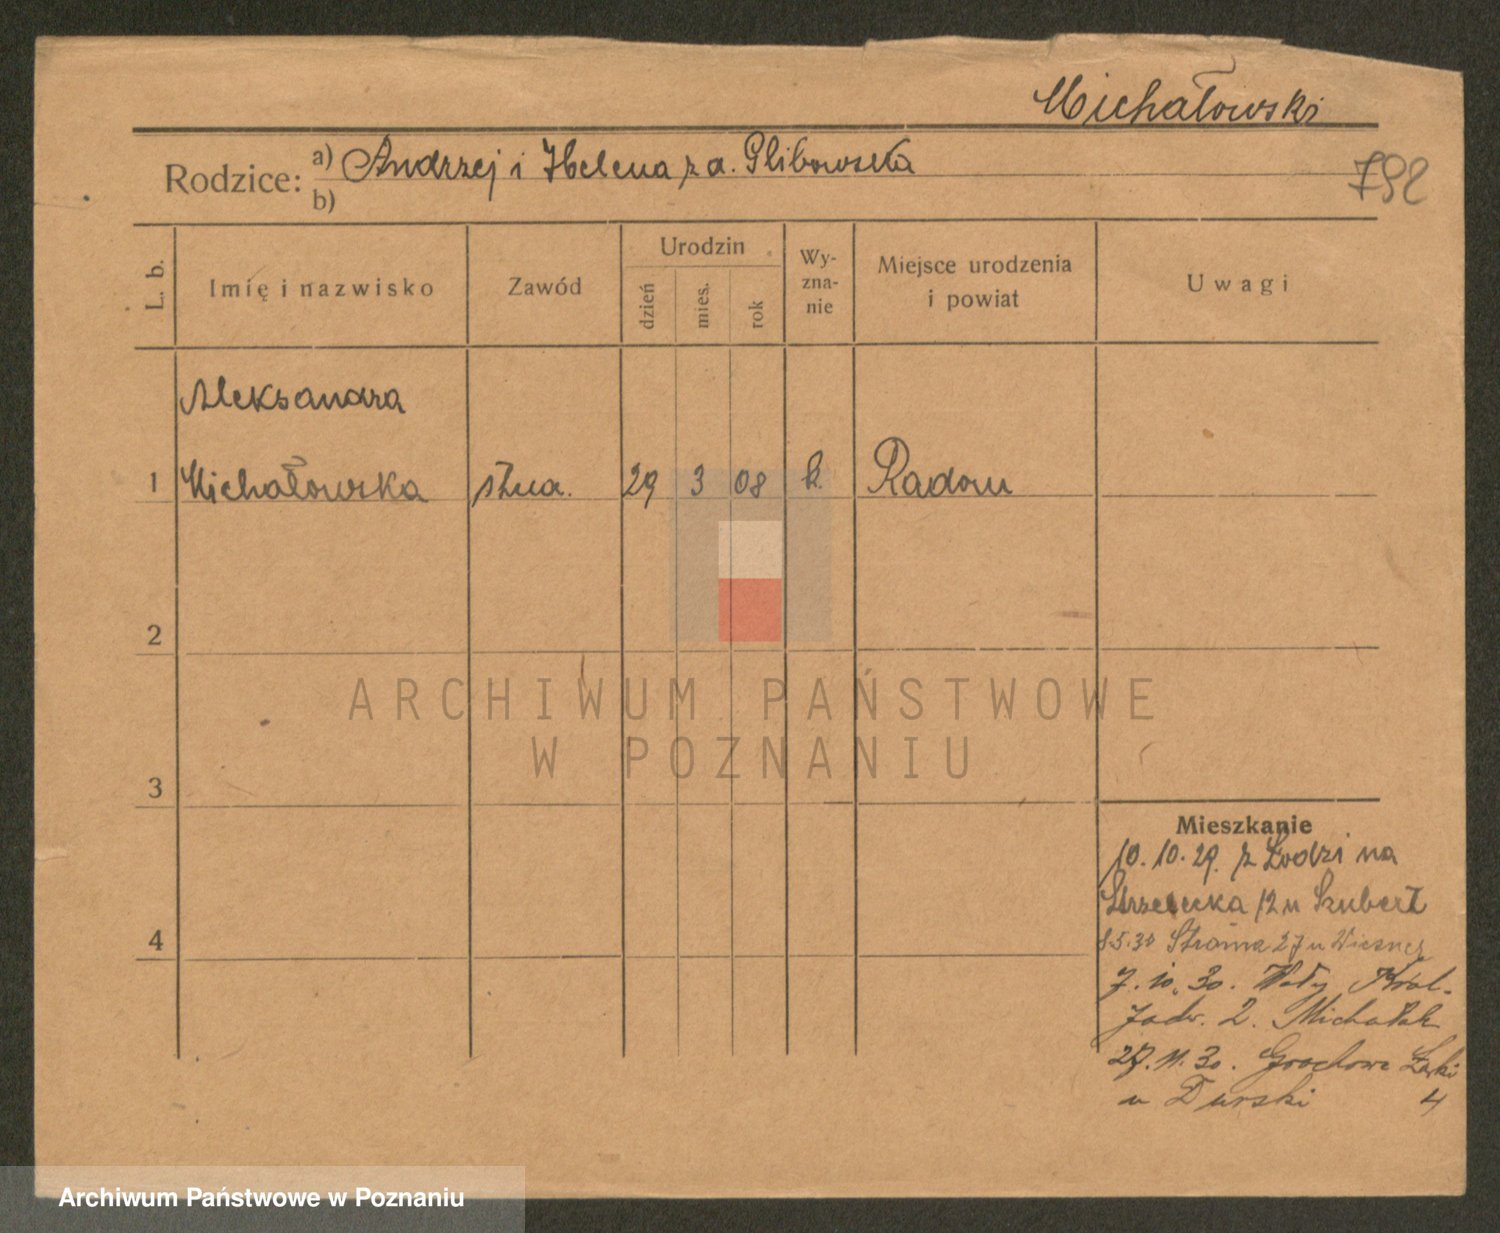 Michałowski
Rodzice: a) Andrzej i Helena z d. Glibowska
792
b)
L. b.
Imię i nazwisko
Zawód
Urodzin
dzień
mies.
rok
Wy-
zna-
nie
Miejsce urodzenia
i powiat
Uwagi
Aleksandra
1 Michałowska służ. 29 3 08 k. Radom
2
3
4
Mieszkanie
10.10.29. z Łodzi na
Strzelecka 12 u Szubert
8.5.30 Stroma 27 u Wiesner
7.10.30. Wały Król.
Jadw. 2. Michalak
27.11.30. Grochowe Łąki
u Durski 4
ARCHIWUM PAŃSTWOWE
W POZNANIU
Archiwum Państwowe w Poznaniu